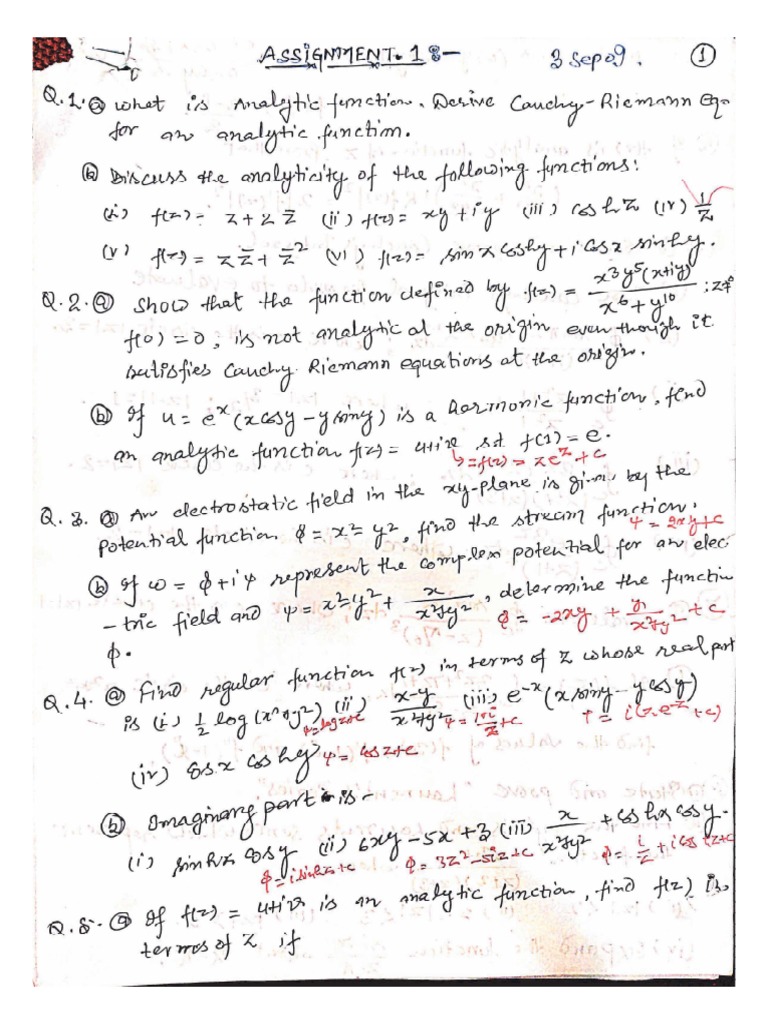 ASSIGNMENT. 1 :- 3 Sep 09. 1
Q.1. (a) What is Analytic function. Derive Cauchy-Riemann Eqn
for an analytic function.
(b) Discuss the analyticity of the following functions:
(i) f(z) = z + 2z̄ (ii) f(z) = xy + iy (iii) cos hz (iv) 1/z
(v) f(z) = z z̄ + z̄² (vi) f(z) = sin x cosh y + i cos x sinh y.
Q.2. (a) Show that the function defined by f(z) = x³y⁵(x+iy)/(x⁶+y¹⁰) ; z≠
f(0) = 0, is not analytic at the origin even though it
satisfies Cauchy Riemann equations at the origin.
(b) If u = eˣ(x cos y - y sin y) is a harmonic function, find
an analytic function f(z) = u+iv s.t f(1) = e.
⇒ f(z) = zeᶻ + c
Q.3. (a) An electrostatic field in the xy-plane is given by the
potential function φ = x² - y², find the stream function. ψ = 2xy+c
(b) If ω = φ + iψ represent the complex potential for an elec
-tric field and ψ = x² - y² + x/(x²+y²), determine the function
φ. φ = -2xy + y/(x²+y²) + c
Q.4. (a) Find regular function f(z) in terms of z whose real part
is (i) ½ log(x²+y²) (ii) (x-y)/(x²+y²) (iii) e⁻ˣ(x sin y - y cos y)
ψ = log z + c ψ = (1+i)/z + c ψ = i(ze⁻ᶻ + c)
(iv) cos x cos hy ψ = cos z + c
(b) Imaginary part is -
(i) sin hx cos y (ii) 6xy - 5x + 3 (iii) x/(x²+y²) + cos hx cos y.
φ = i sin hz + c φ = 3z² - 5iz + c φ = i/z + i cos hz + c
Q.5. (a) If f(z) = u+iv is an analytic function, find f(z) in
terms of z if